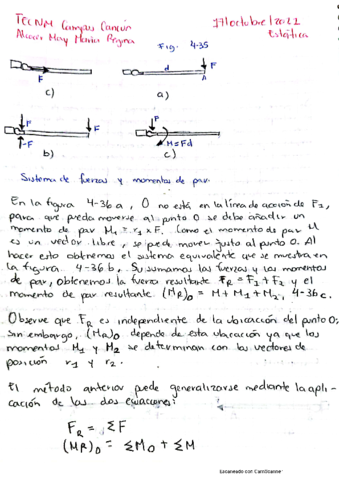 TECNM Campus Cancún
17/octubre/2022
Alcocer May María Regina
Estática
Fig. 4-35
F
c)
d
F
A
a)
F
-F
F
b)
F
M=Fd
c)
Sistema de fuerzas y momentos de par.
En la figura 4-36a, O no está en la línea de acción de F₂,
para que pueda moverse al punto O se debe añadir un
momento de par M₁ = r₁ x F. Como el momento de par M
es un vector libre, se puede mover justo al punto O. Al
hacer esto obtenemos el sistema equivalente que se muestra en
la figura 4-36b. Si sumamos las fuerzas y los momentos
de par, obtenemos la fuerza resultante F_R = F₁ + F₂ y el
momento de par resultante. (M_R)₀ = M + M₁ + M₂, 4-36c.
Observe que F_R es independiente de la ubicación del punto O;
sin embargo, (M_R)₀ depende de esta ubicación ya que los
momentos M₁ y M₂ se determinan con los vectores de
posición r₁ y r₂.
El método anterior puede generalizarse mediante la apli-
cación de las dos ecuaciones:
F_R = ΣF
(MR)₀ = ΣM₀ + ΣM
Escaneado con CamScanner